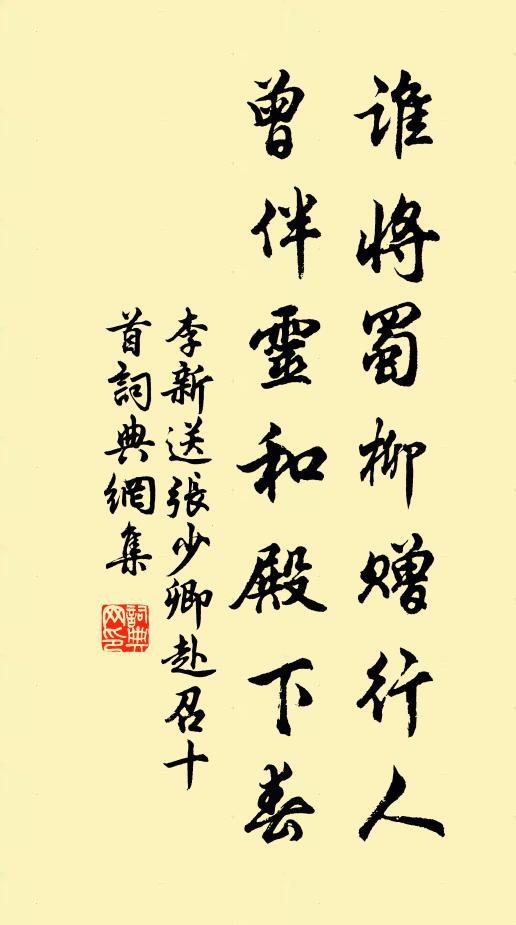 誰將蜀柳贈行人
曾伴靈和殿下春
李新送張少卿赴召十
首詞典網集
詞典網印